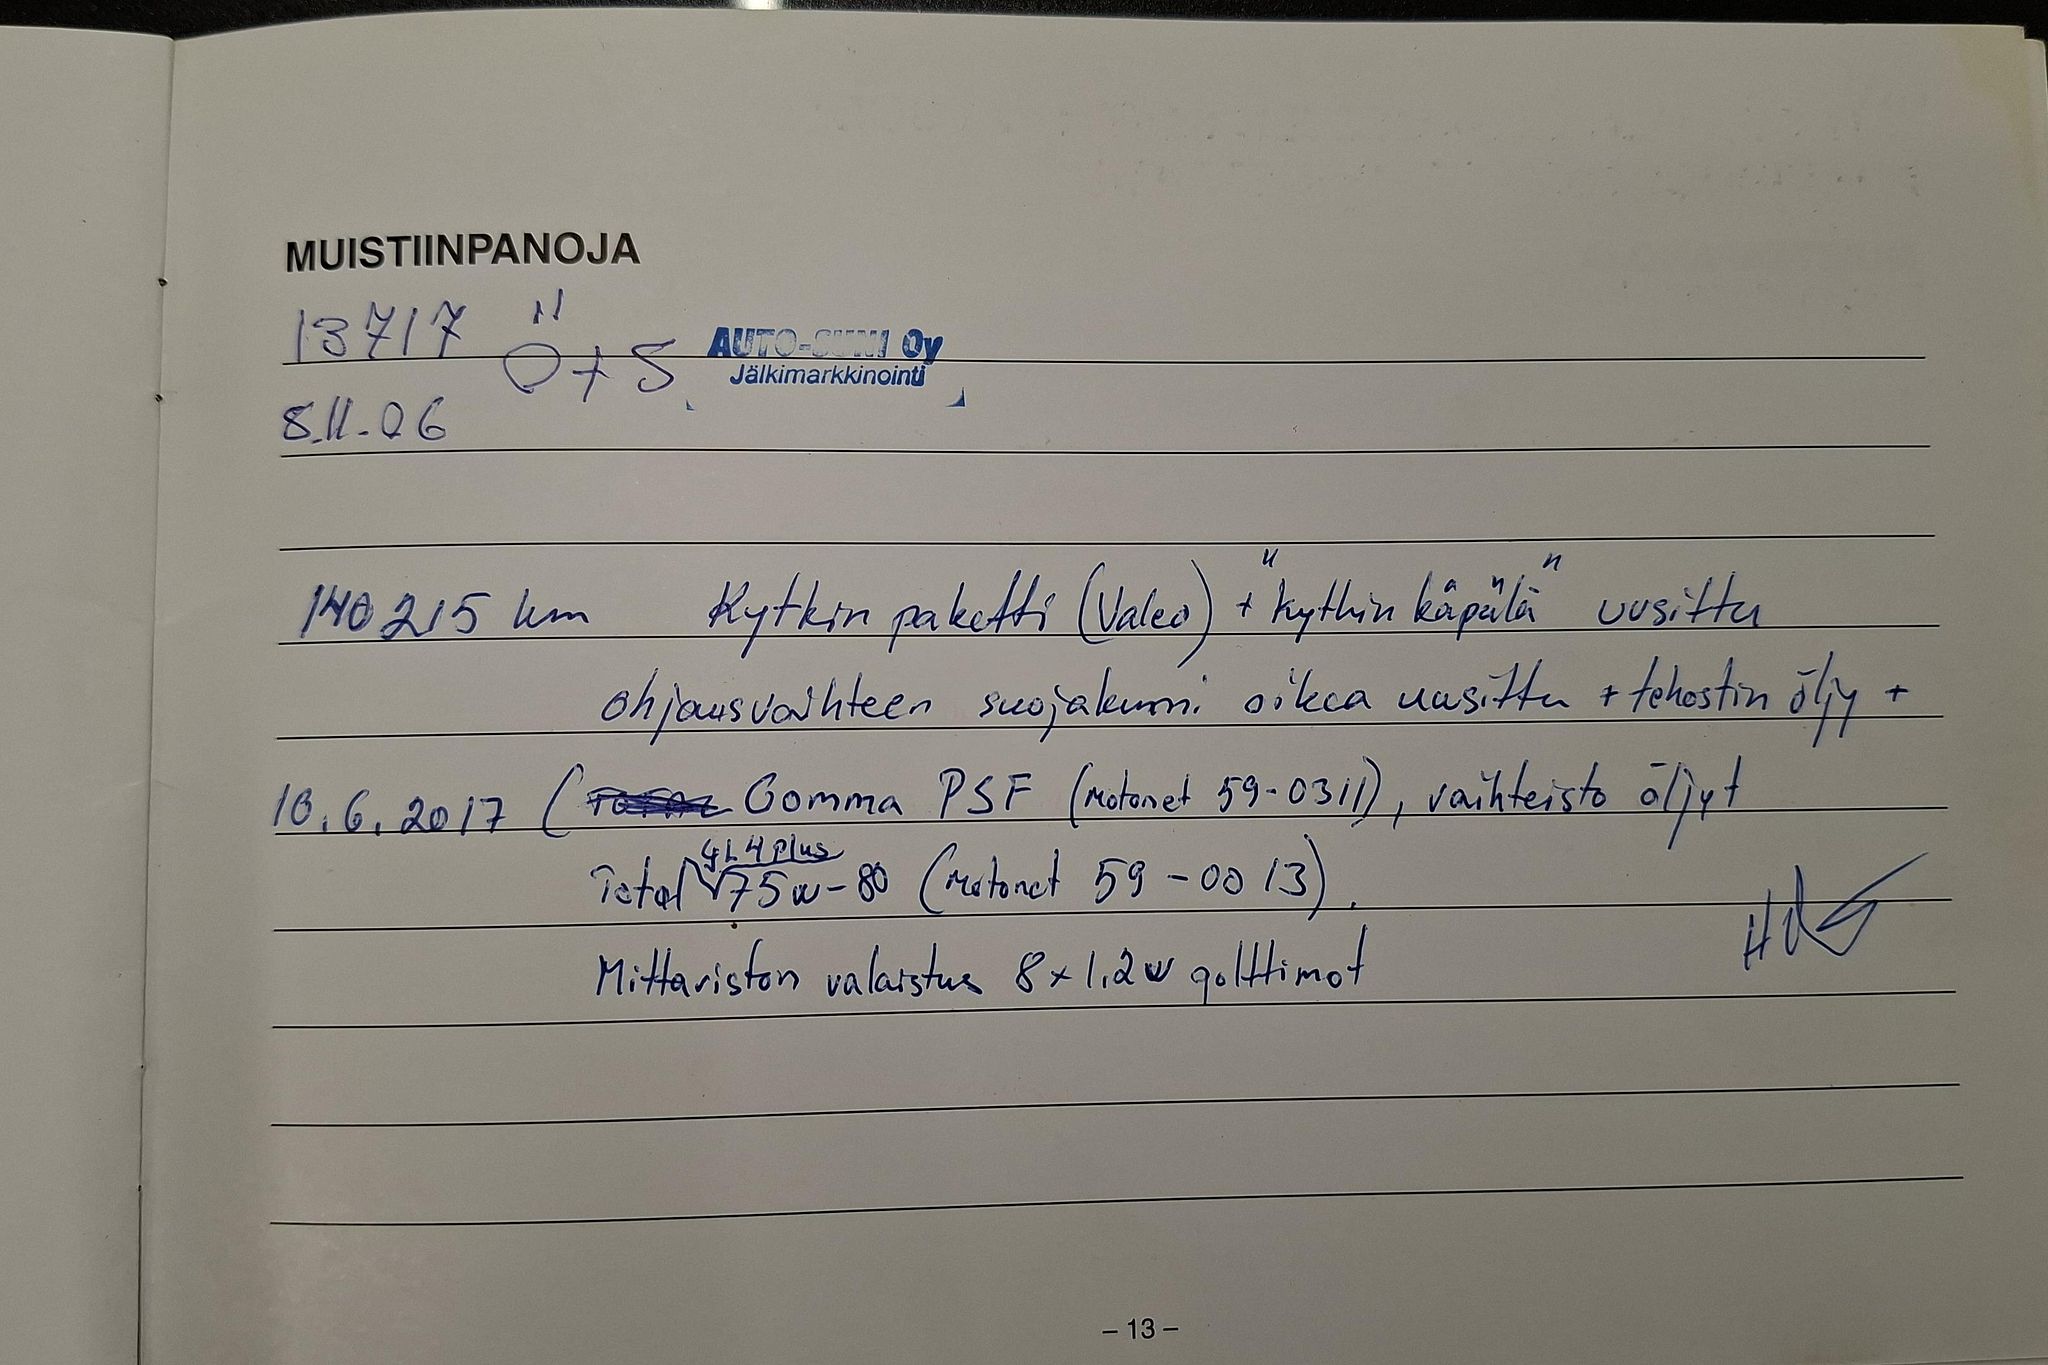 MUISTIINPANOJA
13717 Ö+S AUTO-SUNI Oy
Jälkimarkkinointi
8.11.06
140215 km Kytkin paketti (Valeo) + "kytkin käpälä" uusittu
ohjausvaihteen suojakumi oikea uusittu + tehostin öljy +
10.6.2017 ( Comma PSF (motonet 59-0311), vaihteisto öljyt
GL4 plus
Total 75w-80 (Motonet 59-0013).
Mittariston valaistus 8x1,2w polttimot
- 13 -